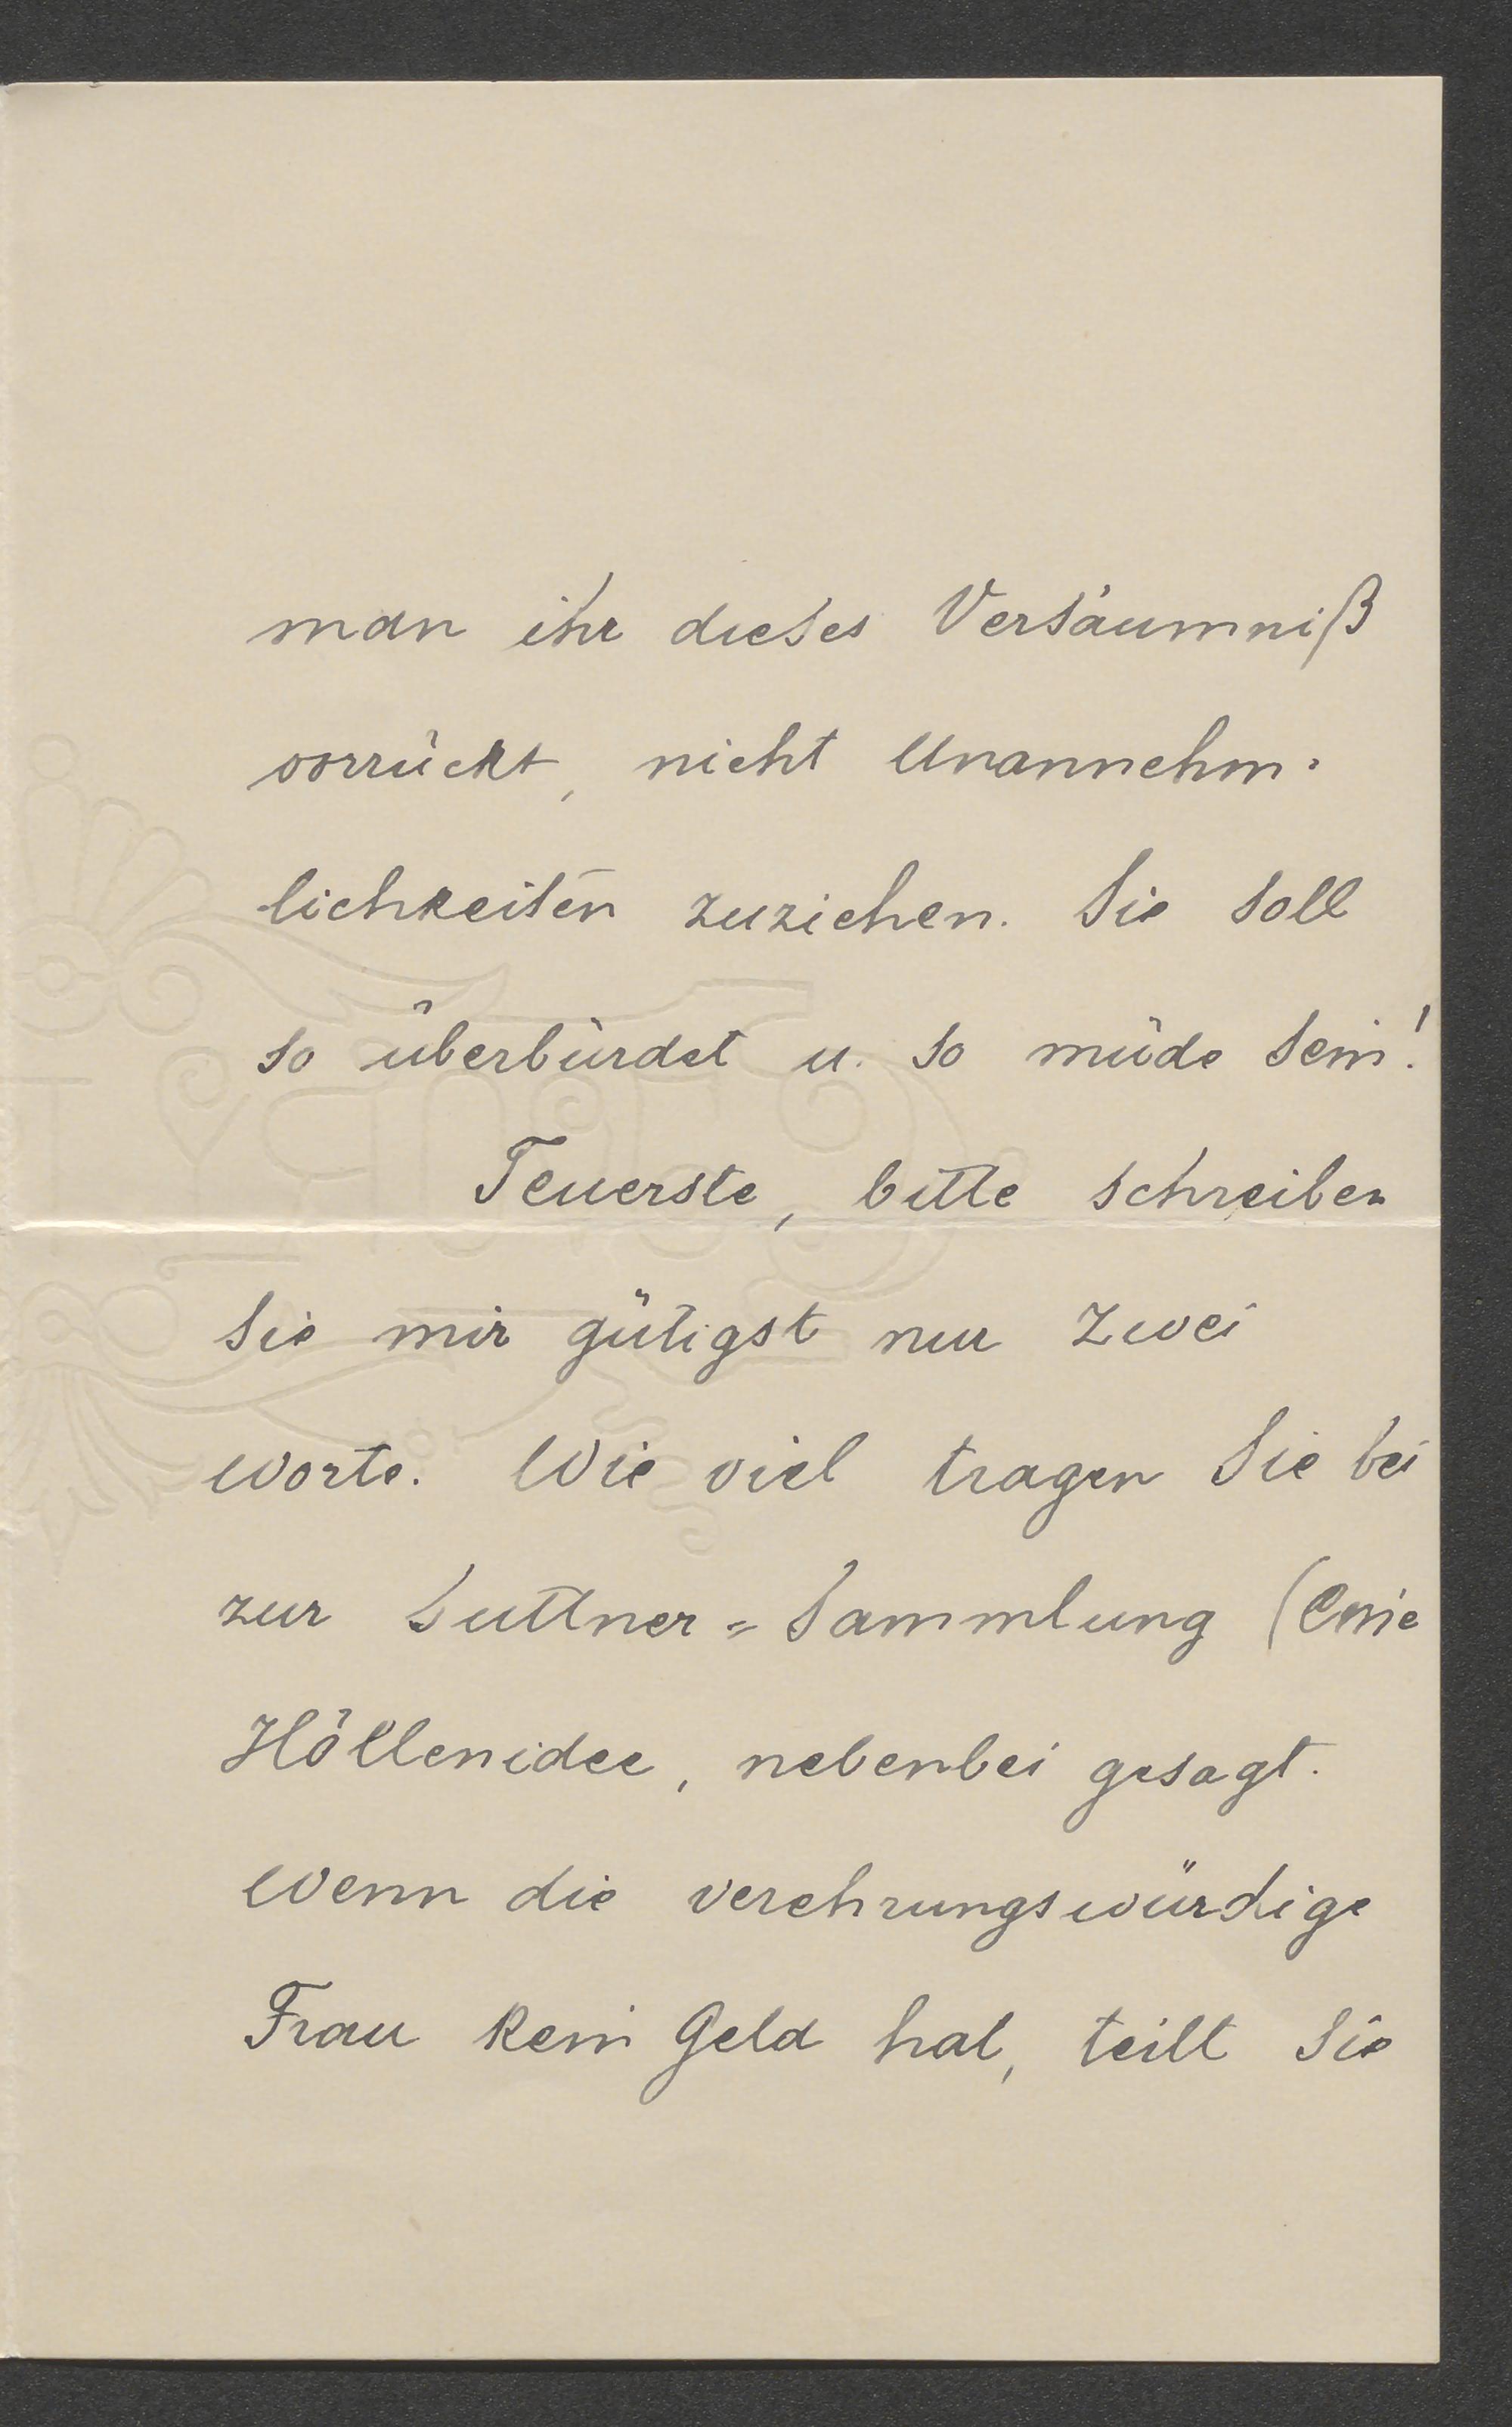 man ihr dieses Versäumniß
vorrückt, nicht Unannehm-
lichkeiten zuziehen. Sie soll
so überbürdet u. so müde sein!
Teuerste, bitte schreiben
Sie mir gütigst nur zwei
Worte. Wie viel tragen Sie bei
zur Suttner=Sammlung (Eine
Höllenidee, nebenbei gesagt.
Wenn die verehrungswürdige
Frau kein Geld hat, teilt sie